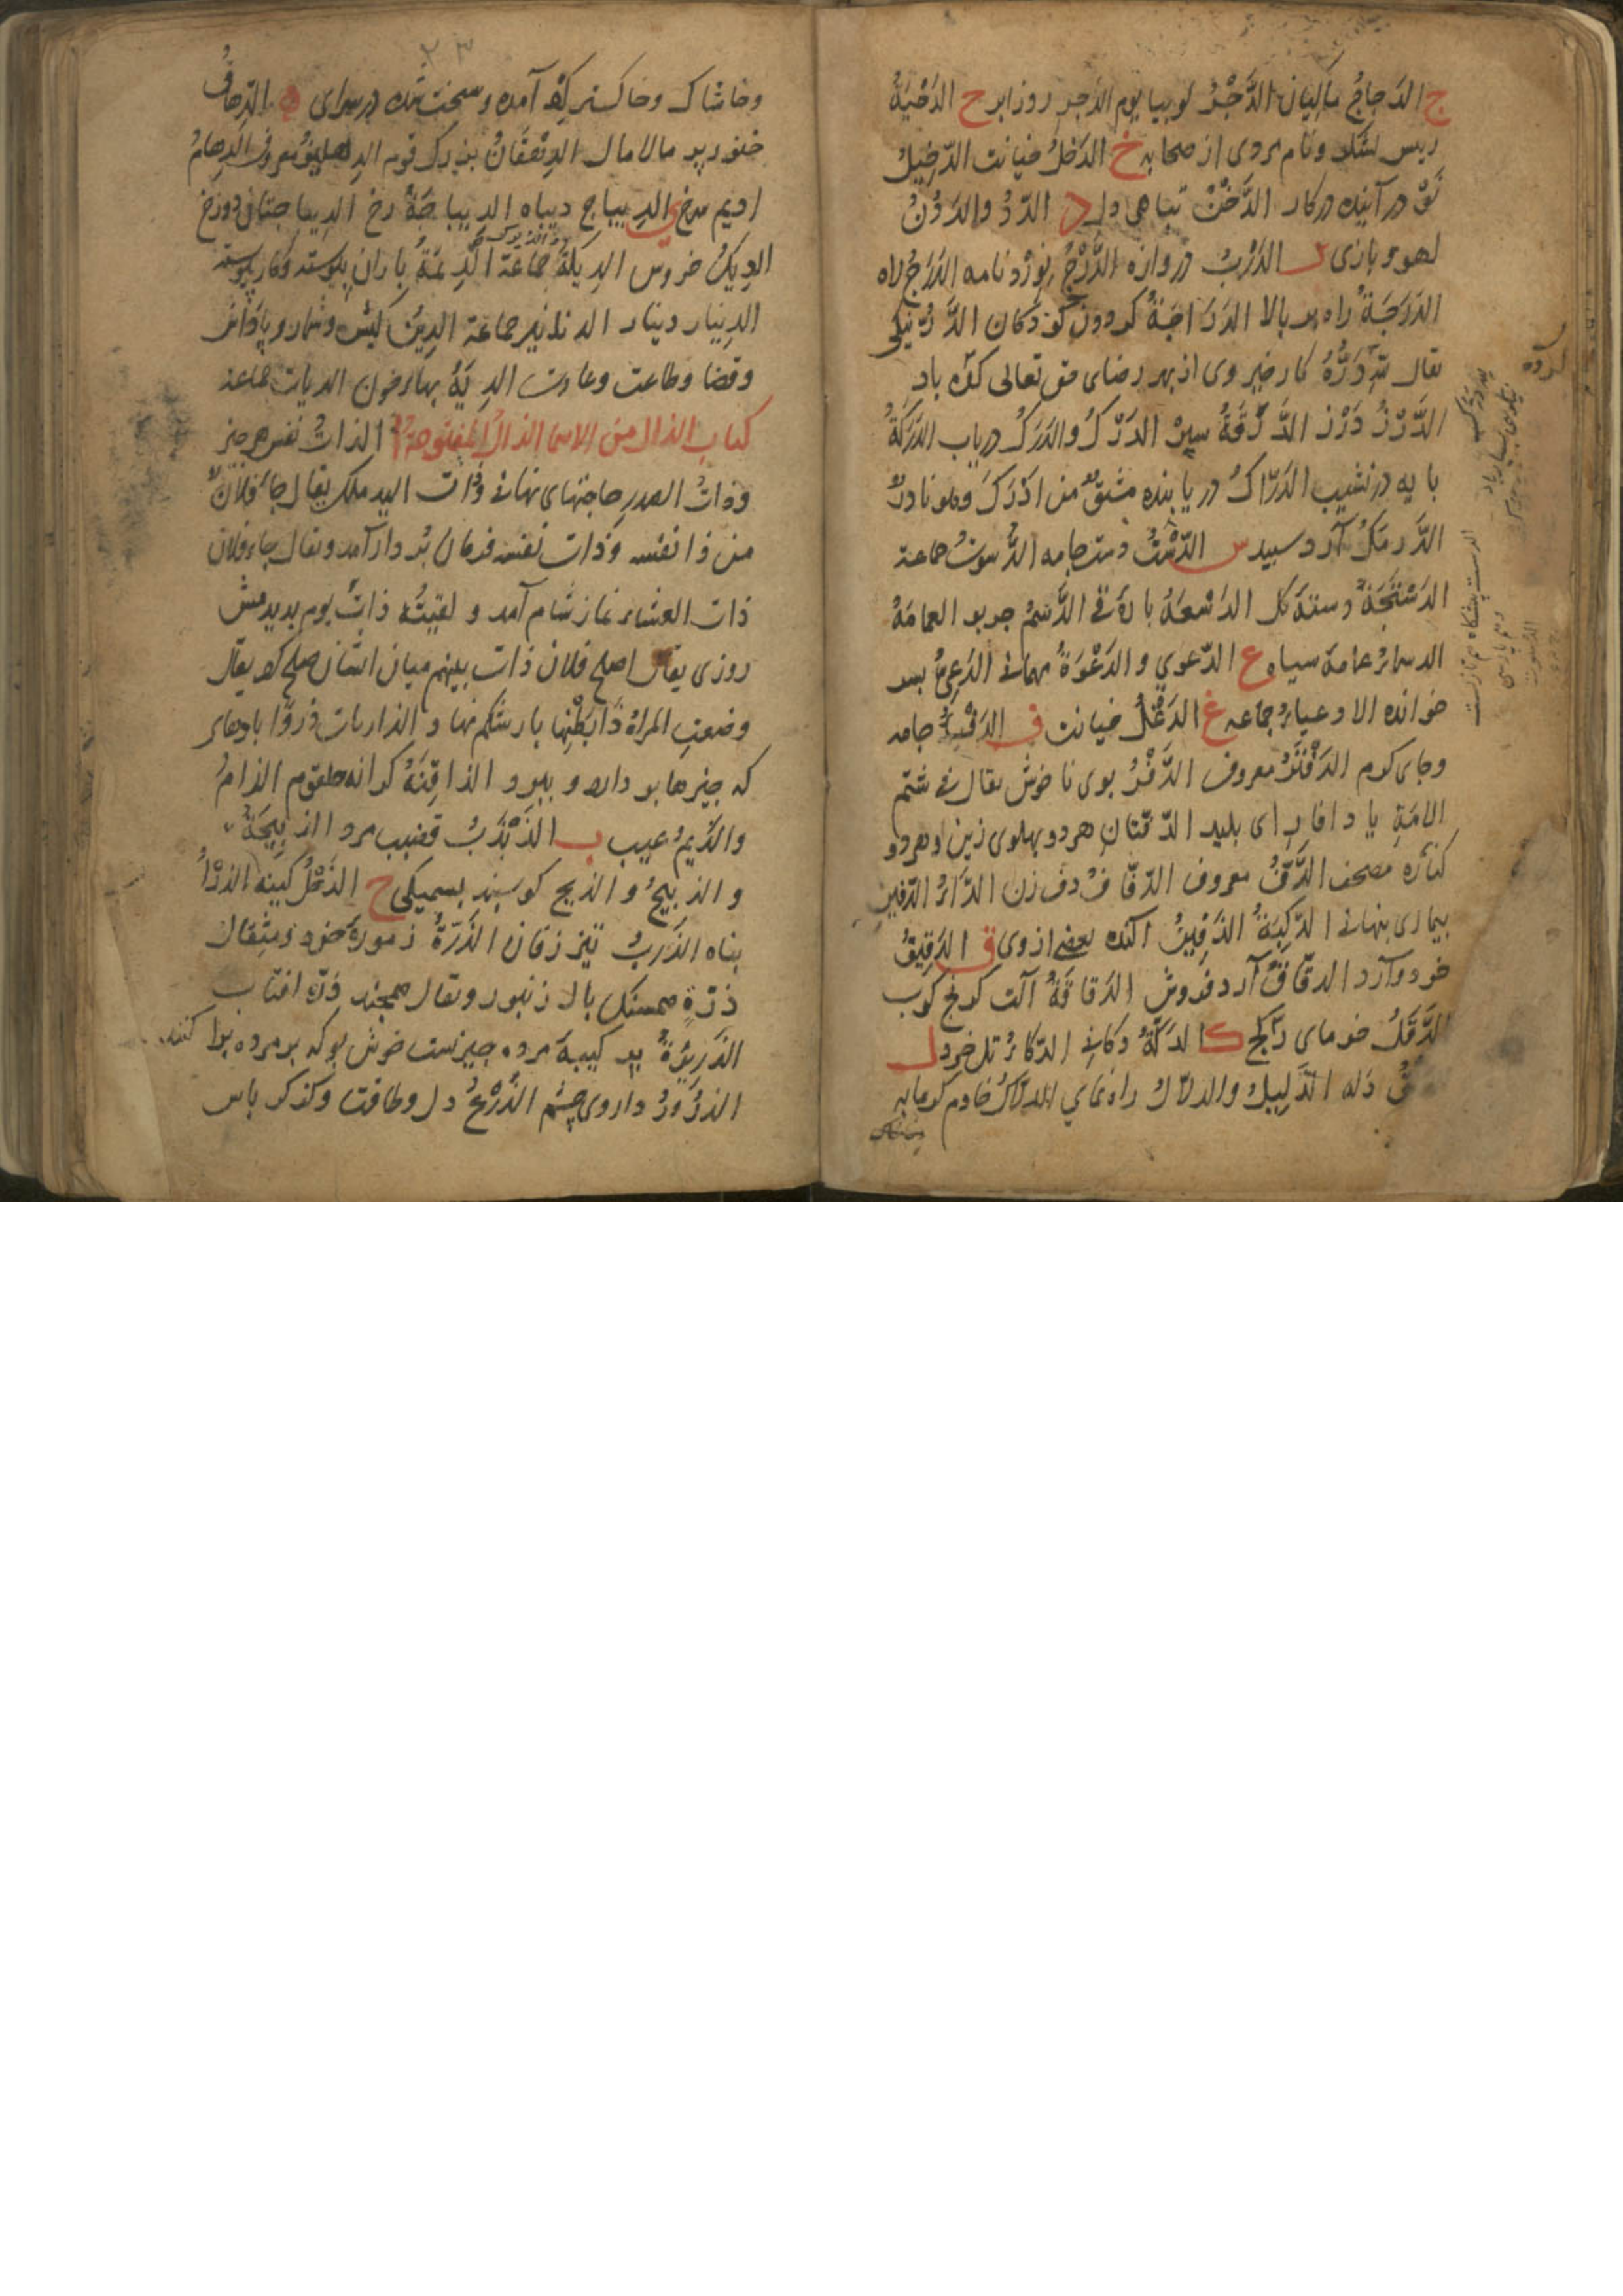 ج الدَجاجُ ماکیان الدَّجْرُ لوبیا یوم الدجر روز ابر ح الدَحْیَةُ
رییس لشکر و نام مردی از صحابه خ الدَخلُ خیانت الدّخیلُ
در آینده در کار الدَّخَنُ تباهی دل د الدَّدُ والدَدَنُ
لهو و بازی ر الدَرْبُ دروازه الدَّرْجُ نوردنامه الدَرَجُ راه
الدَرَجَةُ راه بر بالا الدَرَّاجَةُ کردون کودکان الدَّرُّ نیکی
یقال للّهِ دَرُّهُ کار خیر وی از بهر رضای حق تعالی کرده باد
الدَّرْزُ دَرْز الدَّرَقَةُ سپر الدَرْکُ والدَرَکُ دریاب الدَرَکَةُ
پایه در نشیب الدَرّاکُ دریابنده مشتقٌ من ادْرَکَ وهو نادرٌ
الدَّرمَکُ آرد سپید س الدّسْتُ دست جامه الدُّسوتُ جماعة
الدَسْتَجَةُ دسته کل الدَسْعَةُ الدَّسَمُ چربو العمامَةُ
الدسماءُ عمامهٔ سیاه ع الدّعوی والدَعْوَةُ مهمانی الدَعِیُّ پسر
خوانده الادعیاءُ جماعه غ الدَغَلُ خیانت ف جامه
وجای کرم الدَفْتَرُ معروف الدَّفَرُ بوی ناخوش یقال فی شتم
الامَةِ یا دفارِ ای پلید الدّفّتانِ هر دو پهلوی زین و هر دو
کنارهٔ مصحف الدَّفُّ معروف الدّفّافُ دف زن الدَّاءُ الدّفینُ
بیماری پنهانی الدَفِینُ آکنده بعضی از وی ق الدَقِیقُ
خرد و آرد الدقّاقُ آرد فروش الدَقاقَةُ آلت کرنج کوب
الدَّقَلُ خرمای ک الدَکّةُ دکان الدّکاءُ تل خرد ل
دَله الدَّلِیلُ والدلاّلُ راه نمای الدلاّکُ خادم کرمابه
وخاشاک وخاکستر کرد آمده وسخت شده در سرای ه الدِهاقُ
پر مالامال الدِهْقَانُ بزرک قوم الدِهلیزُ معروف الدِهانُ
ادیم سرخ ی الدیباج دیباه الدیباجَةُ رخ الدیباجتان دو رخ
الدِیکُ خروس الدِیَکَةُ جماعة الدِیمَةُ باران پیوسته وکار پیوسته
الدِینار دینار الدنانیر جماعة الدِینُ کیش وشمار وپاداش
وقضا وطاعت وعادت الدِیَةُ بهاء خون الدیات جماعة
کتاب الذال من الاسما الذال المفتوحة ا الذاتُ نفس هر چیز
وذاتُ الصدرِ حاجتهای نهانی وذات الید ملک یقال جاءَ فلانٌ
من ذا نفسه وذات نفسه فرمان بردار آمد ویقال جاء فلان
ذات العشاء نماز شام آمد و لقیتُه ذاتَ یومٍ بدیدمش
روزی یقال اصلح فلان ذات بینهم میان ایشان صلح کرد یقال
وضعتِ المراةُ ذا بَطْنِها بار شکم نهاد والذاریات ذروًا بادهای
که چیزها بردارد و ببرد الذاقِنَةُ کرانه حلقوم الذامُ
والذَیمُ عیب ب الذَبْذَبُ قضیب مرد الذبِیحَةُ
والذبِیحُ والذبح کوسپند بسمیکی ح الذَحْلُ کینه ر الذَرَا
پناه الذَرِبُ تیز زفان الذَرَّةُ زمورهٔ خرد ومثقال
ذرّةٍ همسنک بال زنبور ویقال همچند ذرّه افتاب
الذَرِیرَةُ چیزیست خوش بو که بر مرده پراکنند
الذَرُورُ داروی چشم الذَرْعُ دل وطاقت وکز کرباس